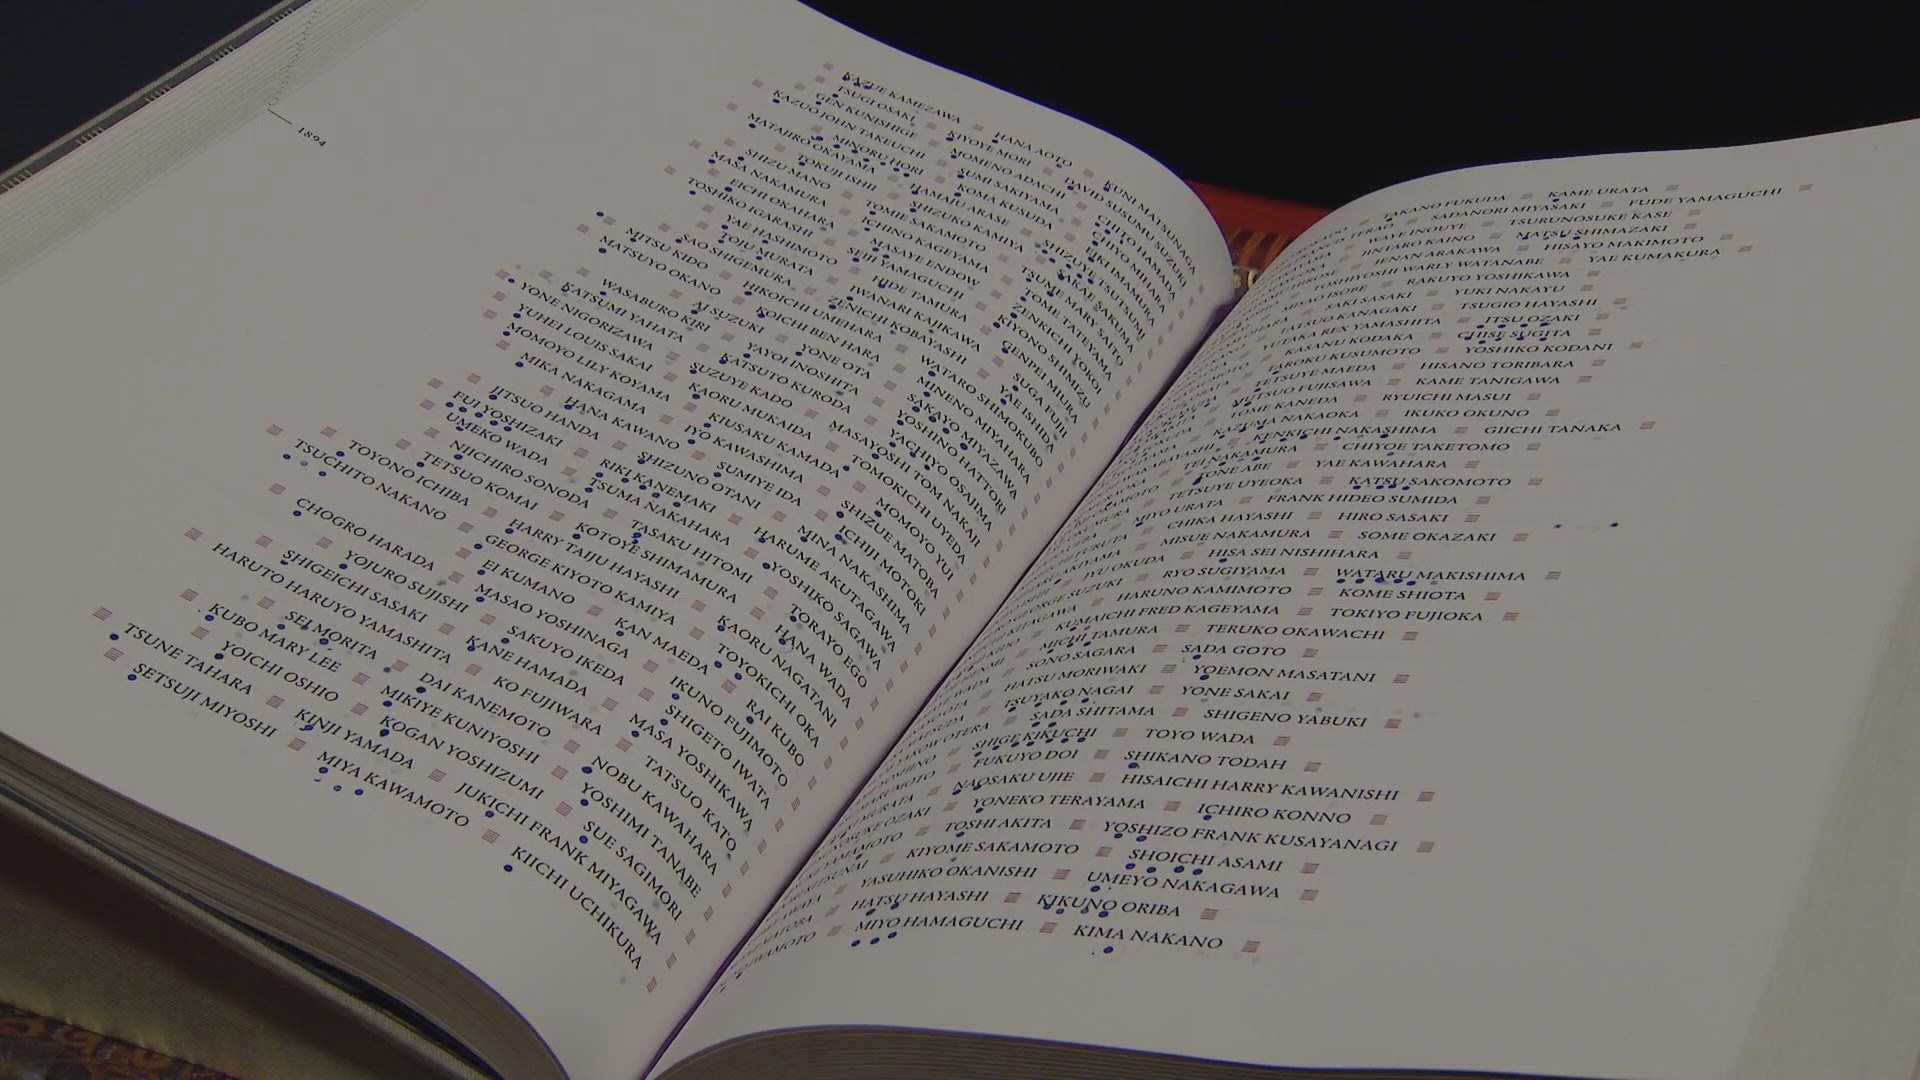 1894
KAZUE KAMEZAWA HANA AOTO KUNI MATSUNAGA
TSUGI OSAKI KIYOYE MORI DAVID SUSUMU SUZUKI
GEN KUNISHIGE MOMENO ADACHI CHITO HAMADA
KAZUO JOHN TAKEUCHI SUMI SAKIYAMA CHIYO MIHARA
MINORU HORI KOMA KUSUDA EIKI IMAMURA
MATAJIRO OKAYAMA HAMAJU ARASE SHIZUYE TSUTSUMI
TOKUJI ISHII SHIZUKO KAMIYA SAKAE SAKUMA
SHIZU MANO TOMIE SAKAMOTO TSUME MARY SAITO
MASA NAKAMURA ICHINO KAGEYAMA TOME TATEYAMA
EICHI OKAHARA MASAYE ENDOW ZENKICHI YOKOI
TOSHIKO IGARASHI SEIJI YAMAGUCHI KIYONO SHIMIZU
YAE HASHIMOTO HIDE TAMURA GENPEI MIURA
TOJU MURATA IWANARI KAJIKAWA SUGA FUJII
SAO SHIGEMURA ZENICHI KOBAYASHI YAE ISHIDA
MITSU KIDO HIKOICHI UMEHARA WATARO SHIMOKUBO
MATSUYO OKANO KOICHI BEN HARA MINENO MIYAHARA
AI SUZUKI YONE OTA SAKAYO MIYAZAWA
WASABURO KIRI YAYOI INOSHITA YOSHINO HATTORI
KATSUMI YAHATA KATSUTO KURODA YACHIYO OSAJIMA
YONE NIGORIZAWA SUZUYE KADO MASAYOSHI TOM NAKAJI
YUHEI LOUIS SAKAI KAORU MUKAIDA TOMOKICHI UYEDA
MOMOYO LILY KOYAMA KIUSAKU KAMADA MOMOYO YUI
MIKA NAKAGAMA IYO KAWASHIMA SHIZUE MATOBA
HANA KAWANO SUMIYE IDA ICHIJI MOTOKI
JITSUO HANDA SHIZUNO OTANI MINA NAKASHIMA
FUI YOSHIZAKI RIKI KANEMAKI HARUME AKUTAGAWA
UMEKO WADA TSUMA NAKAHARA YOSHIKO SAGAWA
NIICHIRO SONODA TASAKU HITOMI TORAYO EGO
TETSUO KOMAI KOTOYE SHIMAMURA HANA WADA
TOYONO ICHIBA HARRY TAIJU HAYASHI KAORU NAGATANI
TSUCHITO NAKANO GEORGE KIYOTO KAMIYA TOYOKICHI OKA
EI KUMANO KAN MAEDA RAI KUBO
CHOGRO HARADA MASAO YOSHINAGA IKUNO FUJIMOTO
YOJURO SUJISHI SAKUYO IKEDA SHIGETO IWATA
SHIGEICHI SASAKI KANE HAMADA MASA YOSHIKAWA
HARUTO HARUYO YAMASHITA KO FUJIWARA TATSUO KATO
SEI MORITA DAI KANEMOTO NOBU KAWAHARA
KUBO MARY LEE MIKIYE KUNIYOSHI YOSHIMI TANABE
YOICHI OSHIO KOGAN YOSHIZUMI SUE SAGIMORI
TSUNE TAHARA KINJI YAMADA JUKICHI FRANK MIYAGAWA
SETSUJI MIYOSHI MIYA KAWAMOTO KIICHI UCHIKURA
TAKANO FUKUDA KAME URATA
TERAO SADANORI MIYASAKI FUDE YAMAGUCHI
WAYE INOUYE TSURUNOSUKE KASE
JINTARO KAINO MATSU SHIMAZAKI
JENAN ARAKAWA HISAYO MAKIMOTO
TOSHIYOSHI WARLY WATANABE YAE KUMAKURA
MISAO ISOBE RAKUYO YOSHIKAWA
SAKI SASAKI YUKI NAKAYU
TATSUO KANAGAKI TSUGIO HAYASHI
YUTAKA REX YAMASHITA ITSU OZAKI
KASANU KODAKA CHISE SUGITA
TAROKU KUSUMOTO YOSHIKO KODANI
TETSUYE MAEDA HISANO TORIBARA
MUTSUO FUJISAWA KAME TANIGAWA
TOME KANEDA RYUICHI MASUI
KAZUMA NAKAOKA IKUKO OKUNO
KENKICHI NAKASHIMA GIICHI TANAKA
TEI NAKAMURA CHIYOE TAKETOMO
TONE ABE YAE KAWAHARA
TETSUYE UYEOKA KATSU SAKOMOTO
MIYO URATA FRANK HIDEO SUMIDA
CHIKA HAYASHI HIRO SASAKI
MISUE NAKAMURA SOME OKAZAKI
IYU OKUDA HISA SEI NISHIHARA
GEORGE SUZUKI RYO SUGIYAMA WATARU MAKISHIMA
KITAGAWA HARUNO KAMIMOTO KOME SHIOTA
KUMAICHI FRED KAGEYAMA TOKIYO FUJIOKA
MICHI TAMURA TERUKO OKAWACHI
SONO SAGARA SADA GOTO
WADA HATSU MORIWAKI YOEMON MASATANI
TSUYAKO NAGAI YONE SAKAI
SADA SHITAMA SHIGENO YABUKI
OTERA SHIGE KIKUCHI TOYO WADA
FUKUYO DOI SHIKANO TODAH
NAOSAKU UJIE HISAICHI HARRY KAWANISHI
MURATA YONEKO TERAYAMA ICHIRO KONNO
OZAKI TOSHI AKITA YOSHIZO FRANK KUSAYANAGI
YAMAMOTO KIYOME SAKAMOTO SHOICHI ASAMI
YASUHIKO OKANISHI UMEYO NAKAGAWA
HATSU HAYASHI KIKUNO ORIBA
IWAMOTO MIYO HAMAGUCHI KIMA NAKANO